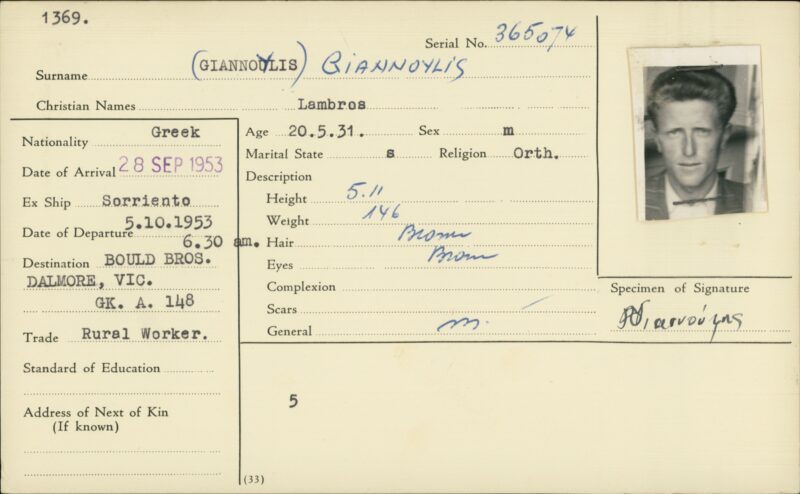 1369.
Serial No. 365074
Surname (GIANNOYLIS) GIANNOYLIS
Christian Names Lambros
Nationality Greek
Date of Arrival 28 SEP 1953
Ex Ship Sorriento
Date of Departure 5.10.1953
6.30 am.
Destination BOULD BROS.
DALMORE, VIC.
GK. A. 148
Trade Rural Worker.
Standard of Education
Address of Next of Kin
(If known)
Age 20.5.31. Sex m
Marital State s Religion Orth.
Description
Height 5.11
Weight 146
Hair Brown
Eyes Brown
Complexion
Scars —
General m.
Specimen of Signature
Γιαννούλης
5
(33)